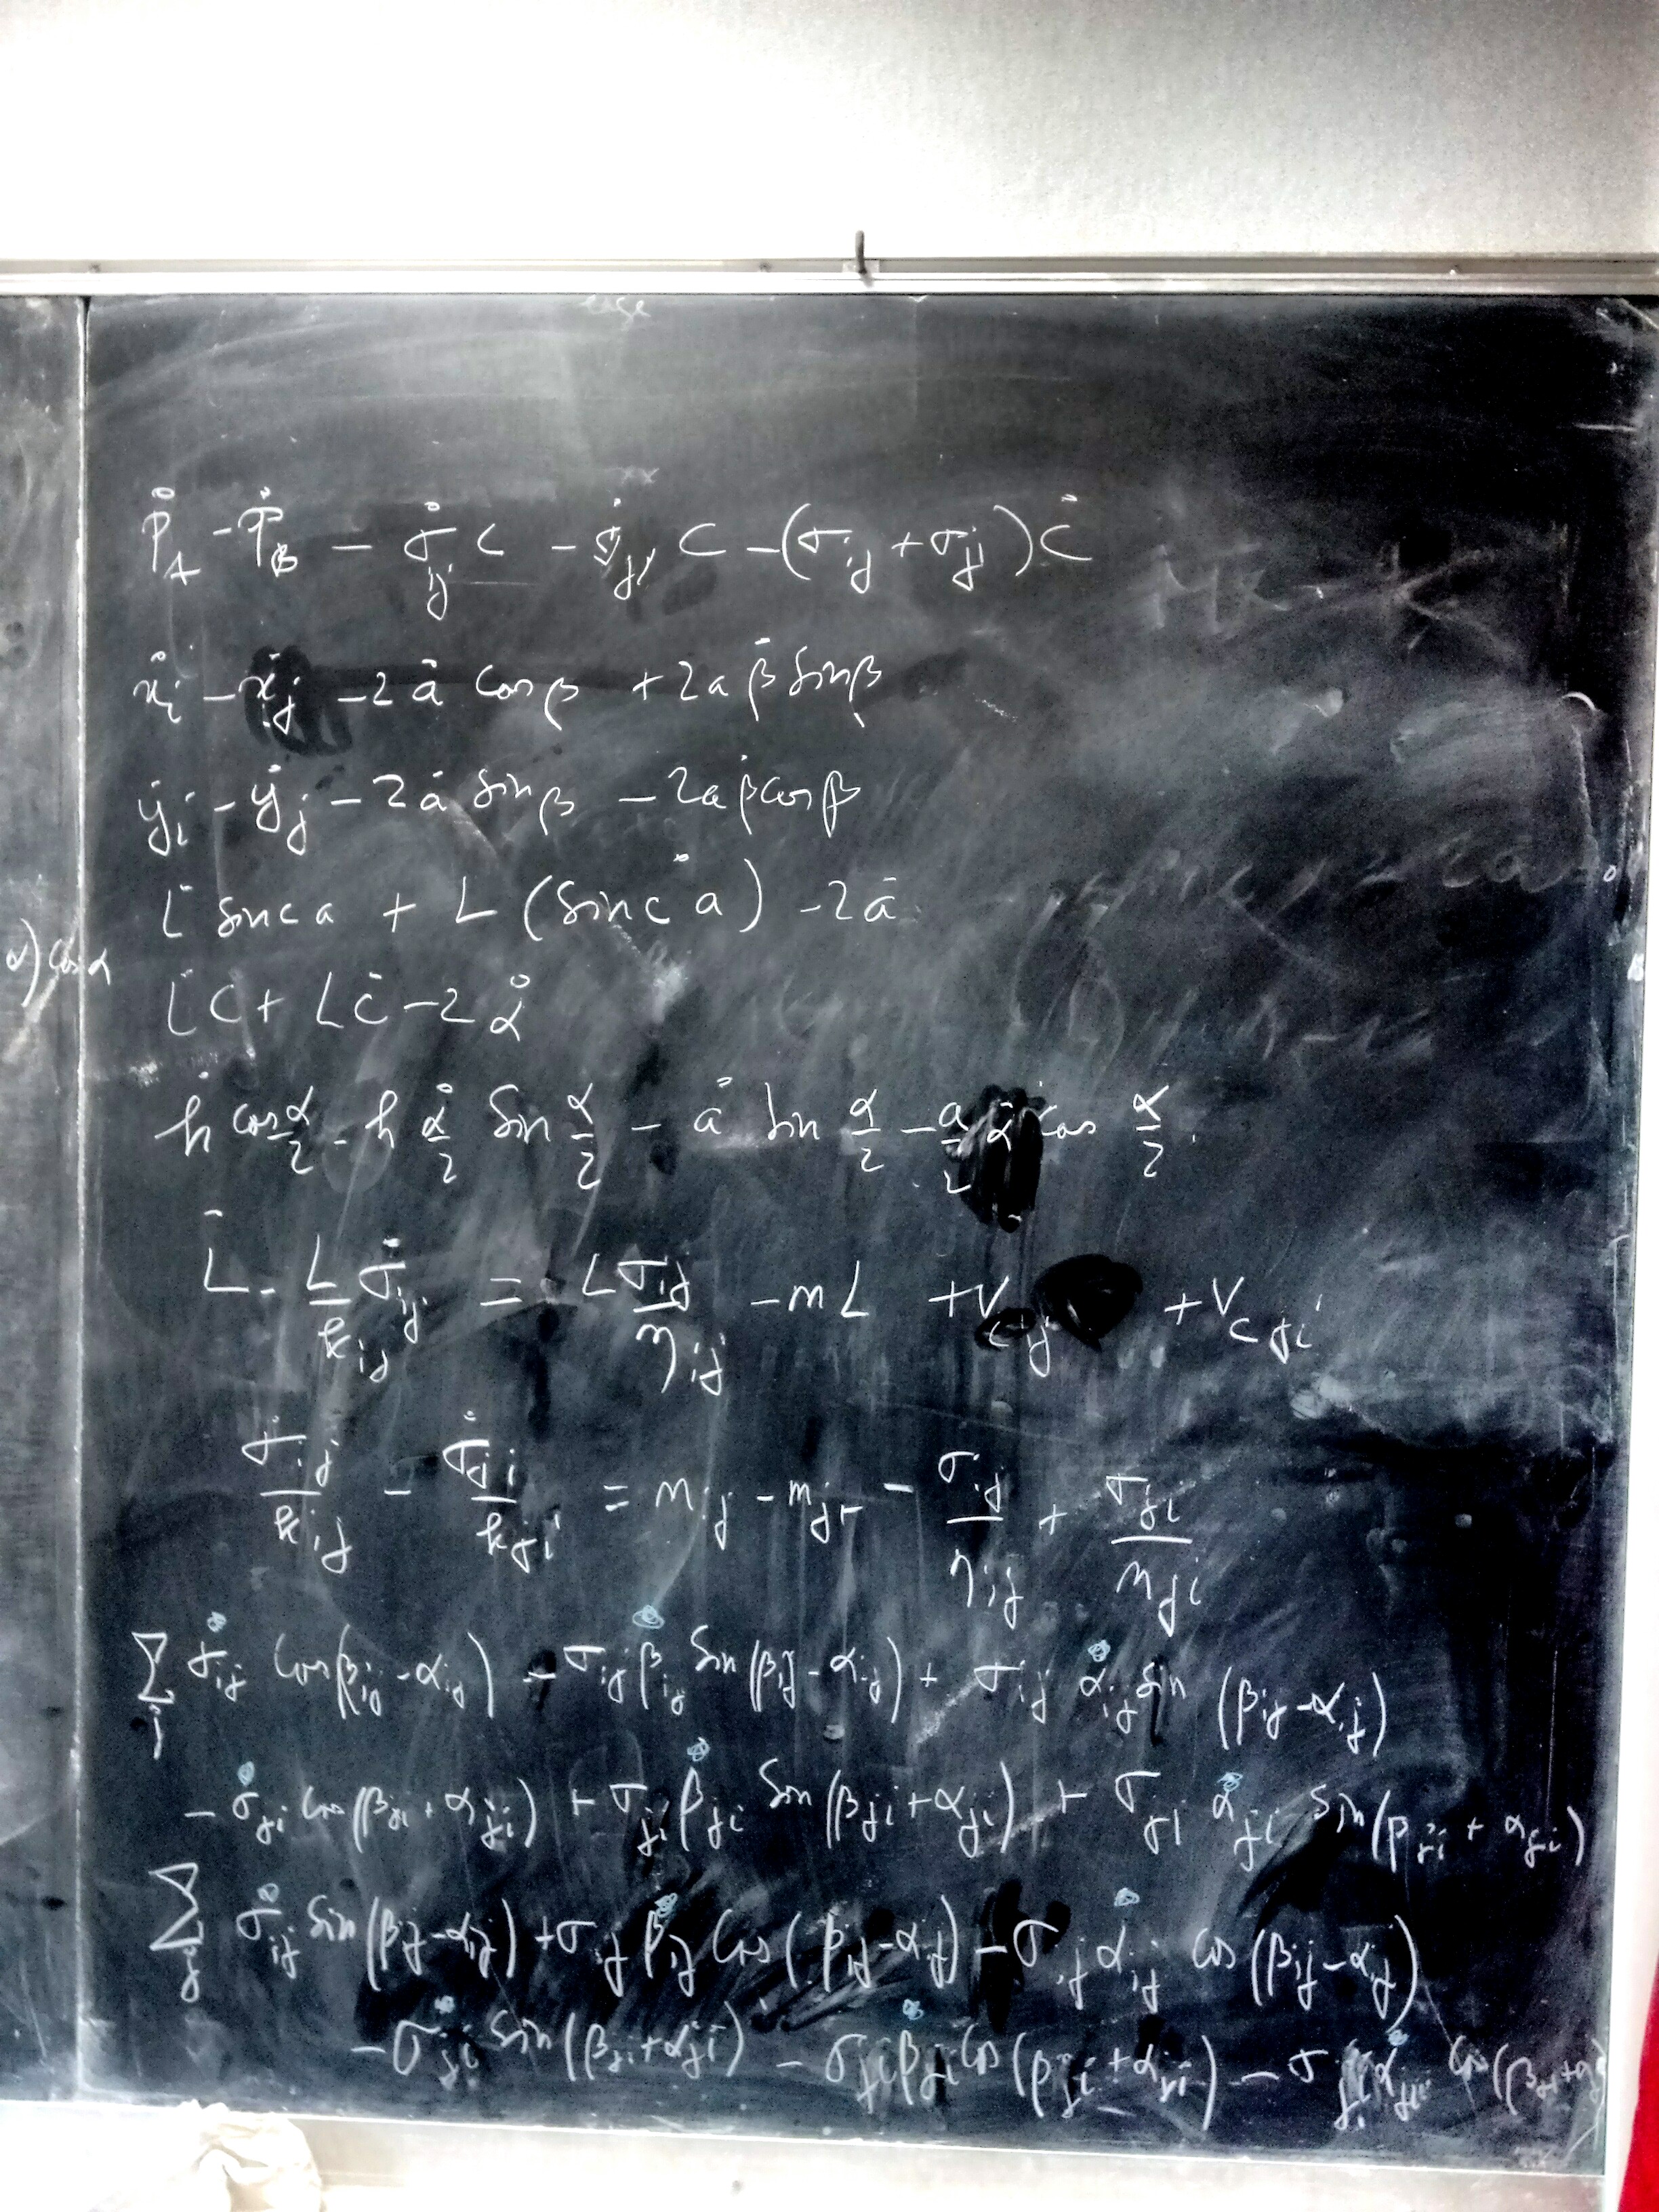 case
Ṗ_A - Ṗ_B - σ̇_ij C - σ̇_ji C - (σ_ij + σ_ji) Ċ
ẋ_i - ẋ_j - 2ȧ cos β + 2a β̇ sin β
ẏ_i - ẏ_j - 2ȧ sin β - 2a β̇ cos β
α) cos α
L̇ sinc a + L (sinc a)˙ - 2ȧ
L̇C + LĊ - 2α̇
ḣ cos α/2 - h α̇/2 sin α/2 - ȧ sin α/2 - a/2 α̇ cos α/2
L̇ - L/k_ij σ̇_ij = L σ_ij/η_ij - mL + V_cij + V_cji
σ̇_ij/k_ij - σ̇_ji/k_ji = m_ij - m_ji - σ_ij/η_ij + σ_ji/η_ji
Σ_j σ̇_ij cos(β_ij - α_ij) - σ_ij β̇_ij sin(β_ij - α_ij) + σ_ij α̇_ij sin(β_ij - α_ij)
- σ̇_ji cos(β_ji + α_ji) + σ_ji β̇_ji sin(β_ji + α_ji) + σ_ji α̇_ji sin(β_ji + α_ji)
Σ_j σ̇_ij sin(β_ij - α_ij) + σ_ij β̇_ij cos(β_ij - α_ij) - σ_ij α̇_ij cos(β_ij - α_ij)
- σ̇_ji sin(β_ji + α_ji) - σ_ji β̇_ji cos(β_ji + α_ji) - σ_ji α̇_ji cos(β_ji + α_ji)